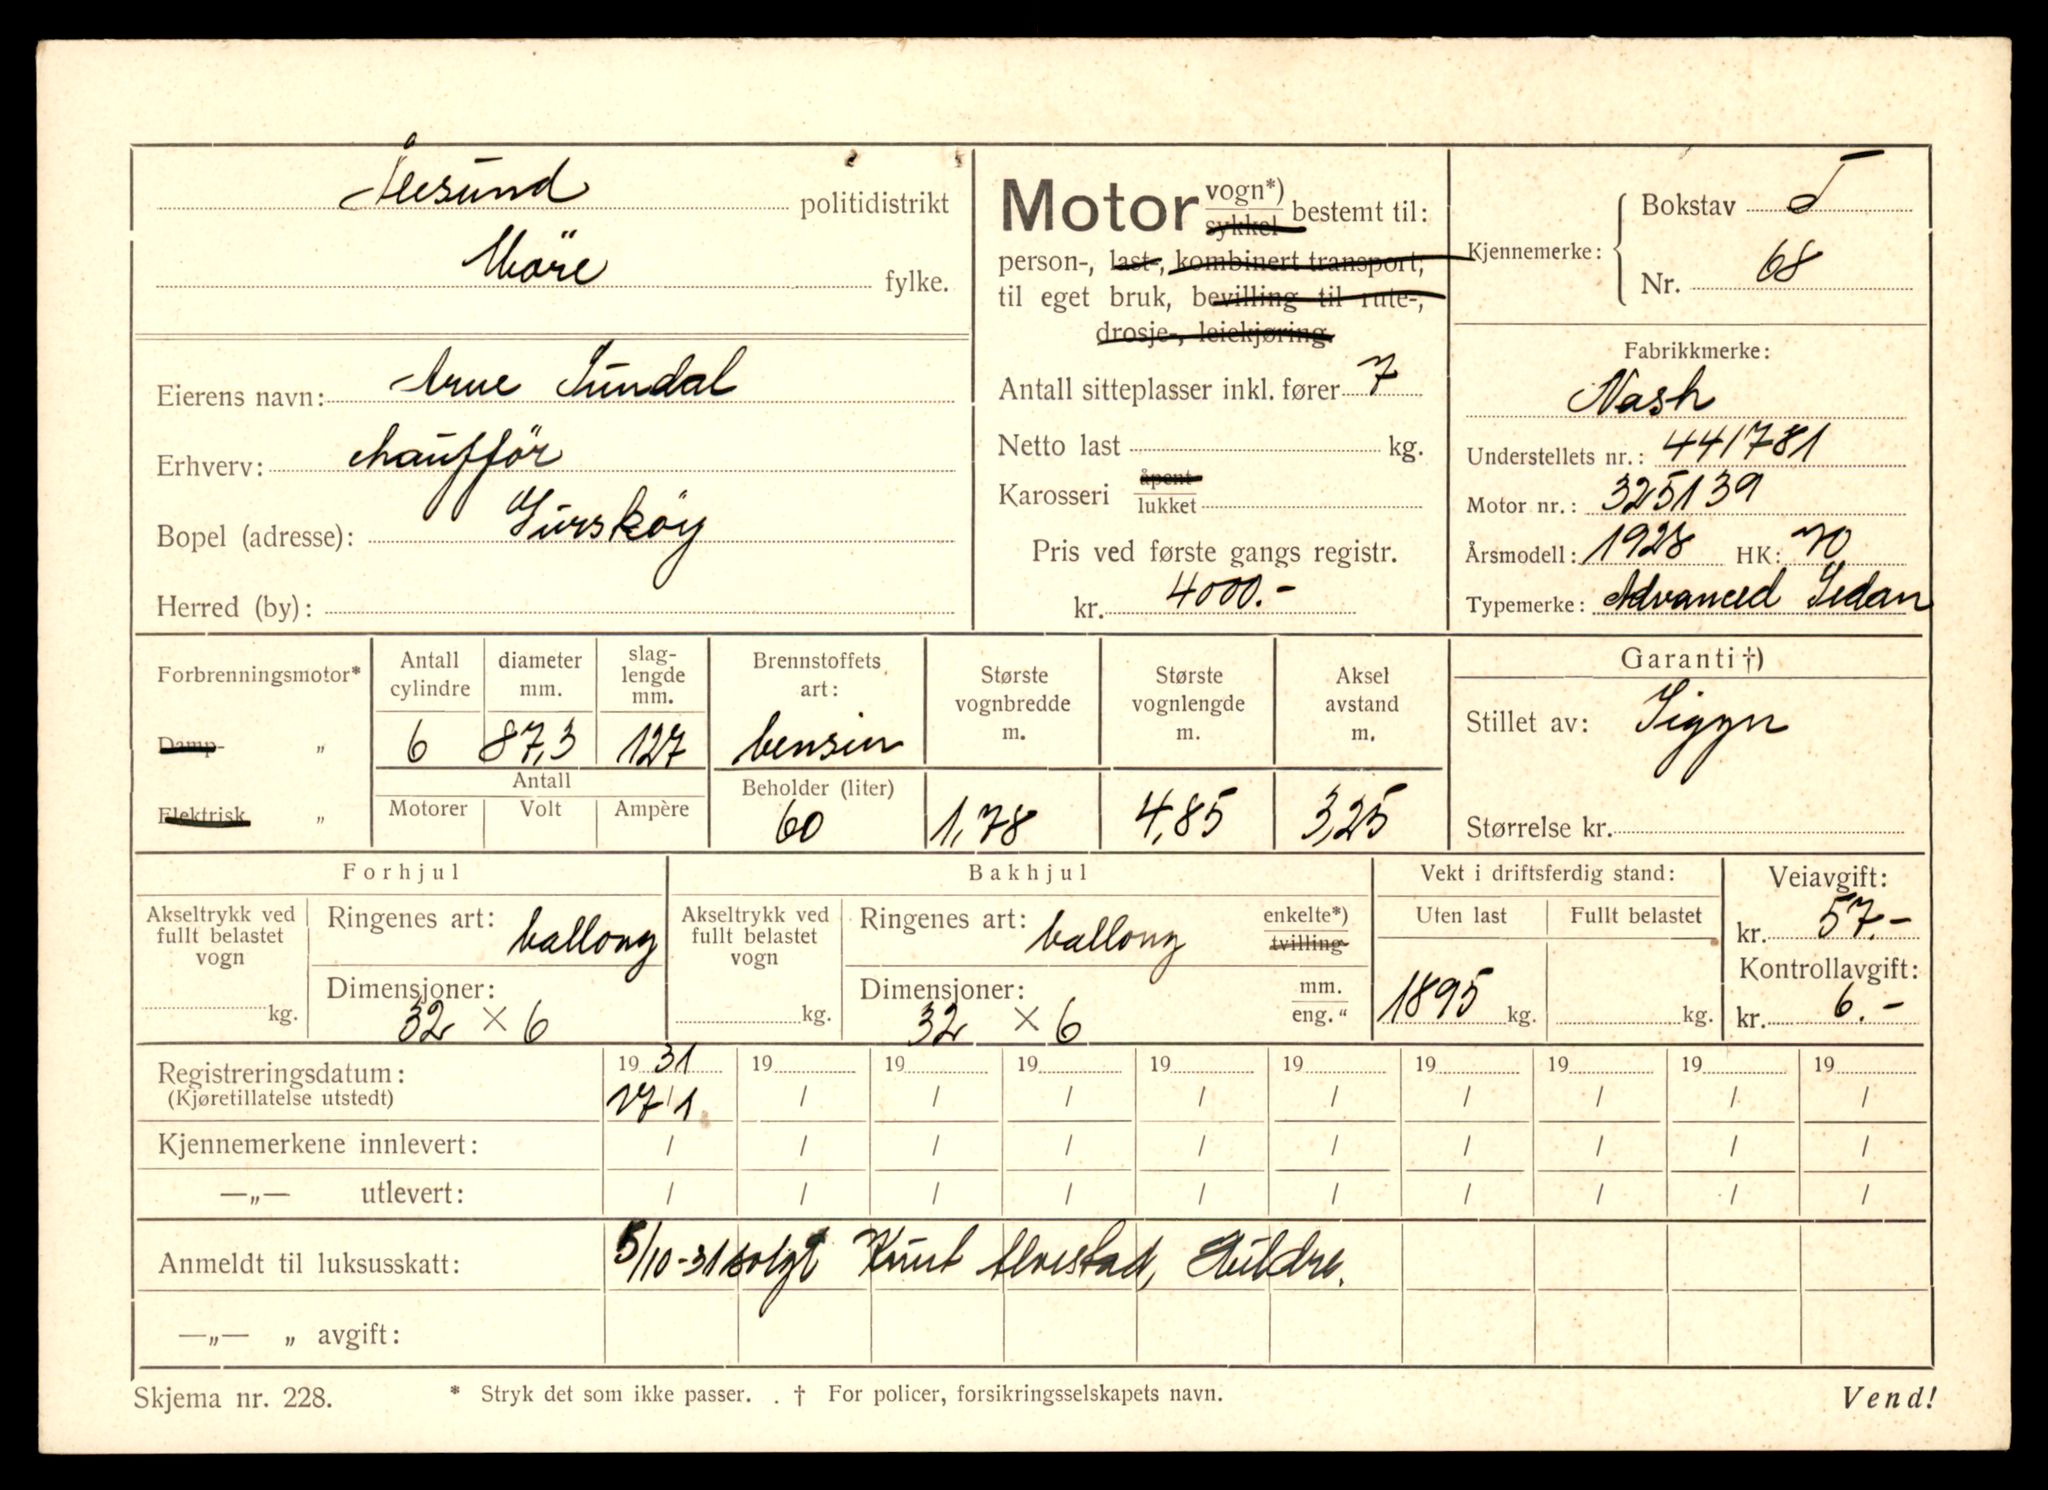 Ålesund politidistrikt
Möre fylke.
Eierens navn: Arne Sundal
Erhverv: chaufför
Bopel (adresse): Gurskøy
Herred (by):
Motor vogn*) sykkel bestemt til:
person-, last-, kombinert transport;
til eget bruk, bevilling til rute-,
drosje-, leiekjøring.
Antall sitteplasser inkl. fører 7
Netto last kg.
Karosseri åpent lukket
Pris ved første gangs registr.
kr. 4000.-
Kjennemerke: Bokstav T
Nr. 68
Fabrikkmerke:
Nash
Understellets nr.: 441781
Motor nr.: 325139
Årsmodell: 1928 HK: 70
Typemerke: Advanced Sedan
Forbrenningsmotor*
Damp- „
Elektrisk „
Antall cylindre 6
diameter mm. 87,3
slag-lengde mm. 127
Antall
Motorer Volt Ampère
Brennstoffets art: bensin
Beholder (liter) 60
Største vognbredde m. 1,78
Største vognlengde m. 4,85
Aksel avstand m. 3,25
Garanti †)
Stillet av: Sigyn
Størrelse kr.
Forhjul
Akseltrykk ved fullt belastet vogn kg.
Ringenes art: ballong
Dimensjoner:
32 × 6
Bakhjul
Akseltrykk ved fullt belastet vogn kg.
Ringenes art: ballong enkelte*) tvilling
Dimensjoner: mm. eng. "
32 × 6
Vekt i driftsferdig stand:
Uten last Fullt belastet
1895 kg. kg.
Veiavgift:
kr. 57.-
Kontrollavgift:
kr. 6.-
Registreringsdatum: 19 31 19 19 19 19 19 19 19 19 19
(Kjøretillatelse utstedt) 17/1 / / / / / / / / /
Kjennemerkene innlevert: / / / / / / / / / /
—„— utlevert: / / / / / / / / / /
Anmeldt til luksusskatt: 5/10-31 solgt Knut Alvestad, Hildre.
—„— „ avgift:
Skjema nr. 228. * Stryk det som ikke passer. . † For policer, forsikringsselskapets navn. Vend!